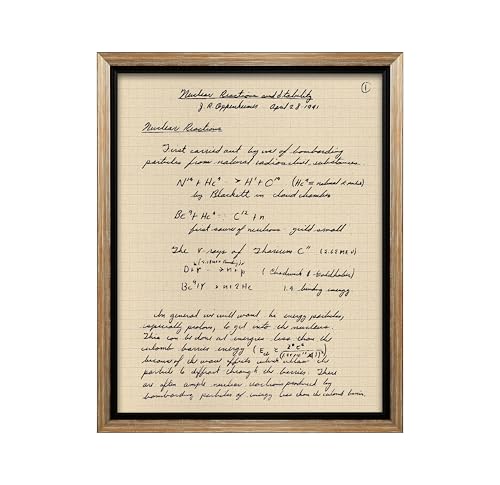 ①
Nuclear Reactions and Stability
J. R. Oppenheimer April 28 1941
Nuclear Reactions
First carried out by use of bombarding
particles from natural radioactive substances.
N¹⁴ + He⁴ → H¹ + O¹⁷ (He⁴ = natural α
by Blackett in cloud chamber
Be⁹ + He⁴ → C¹² + n
first source of neutrons - yield small
The γ-rays of Thorium C" (2.62 MEV)
D + γ → n + p (Chadwick & Goldhaber)
Be⁹ + γ → n + 2He 1.9 binding energy
In general we will want be energy particles,
especially protons, to get into the nucleus.
This can be done at energies less than the
coulomb barrier energy
because of the wave effects which allow the
particle to diffract through the barrier. There
are often ample nuclear reactions produced by
bombarding particles of energy less than the coulomb barrier.